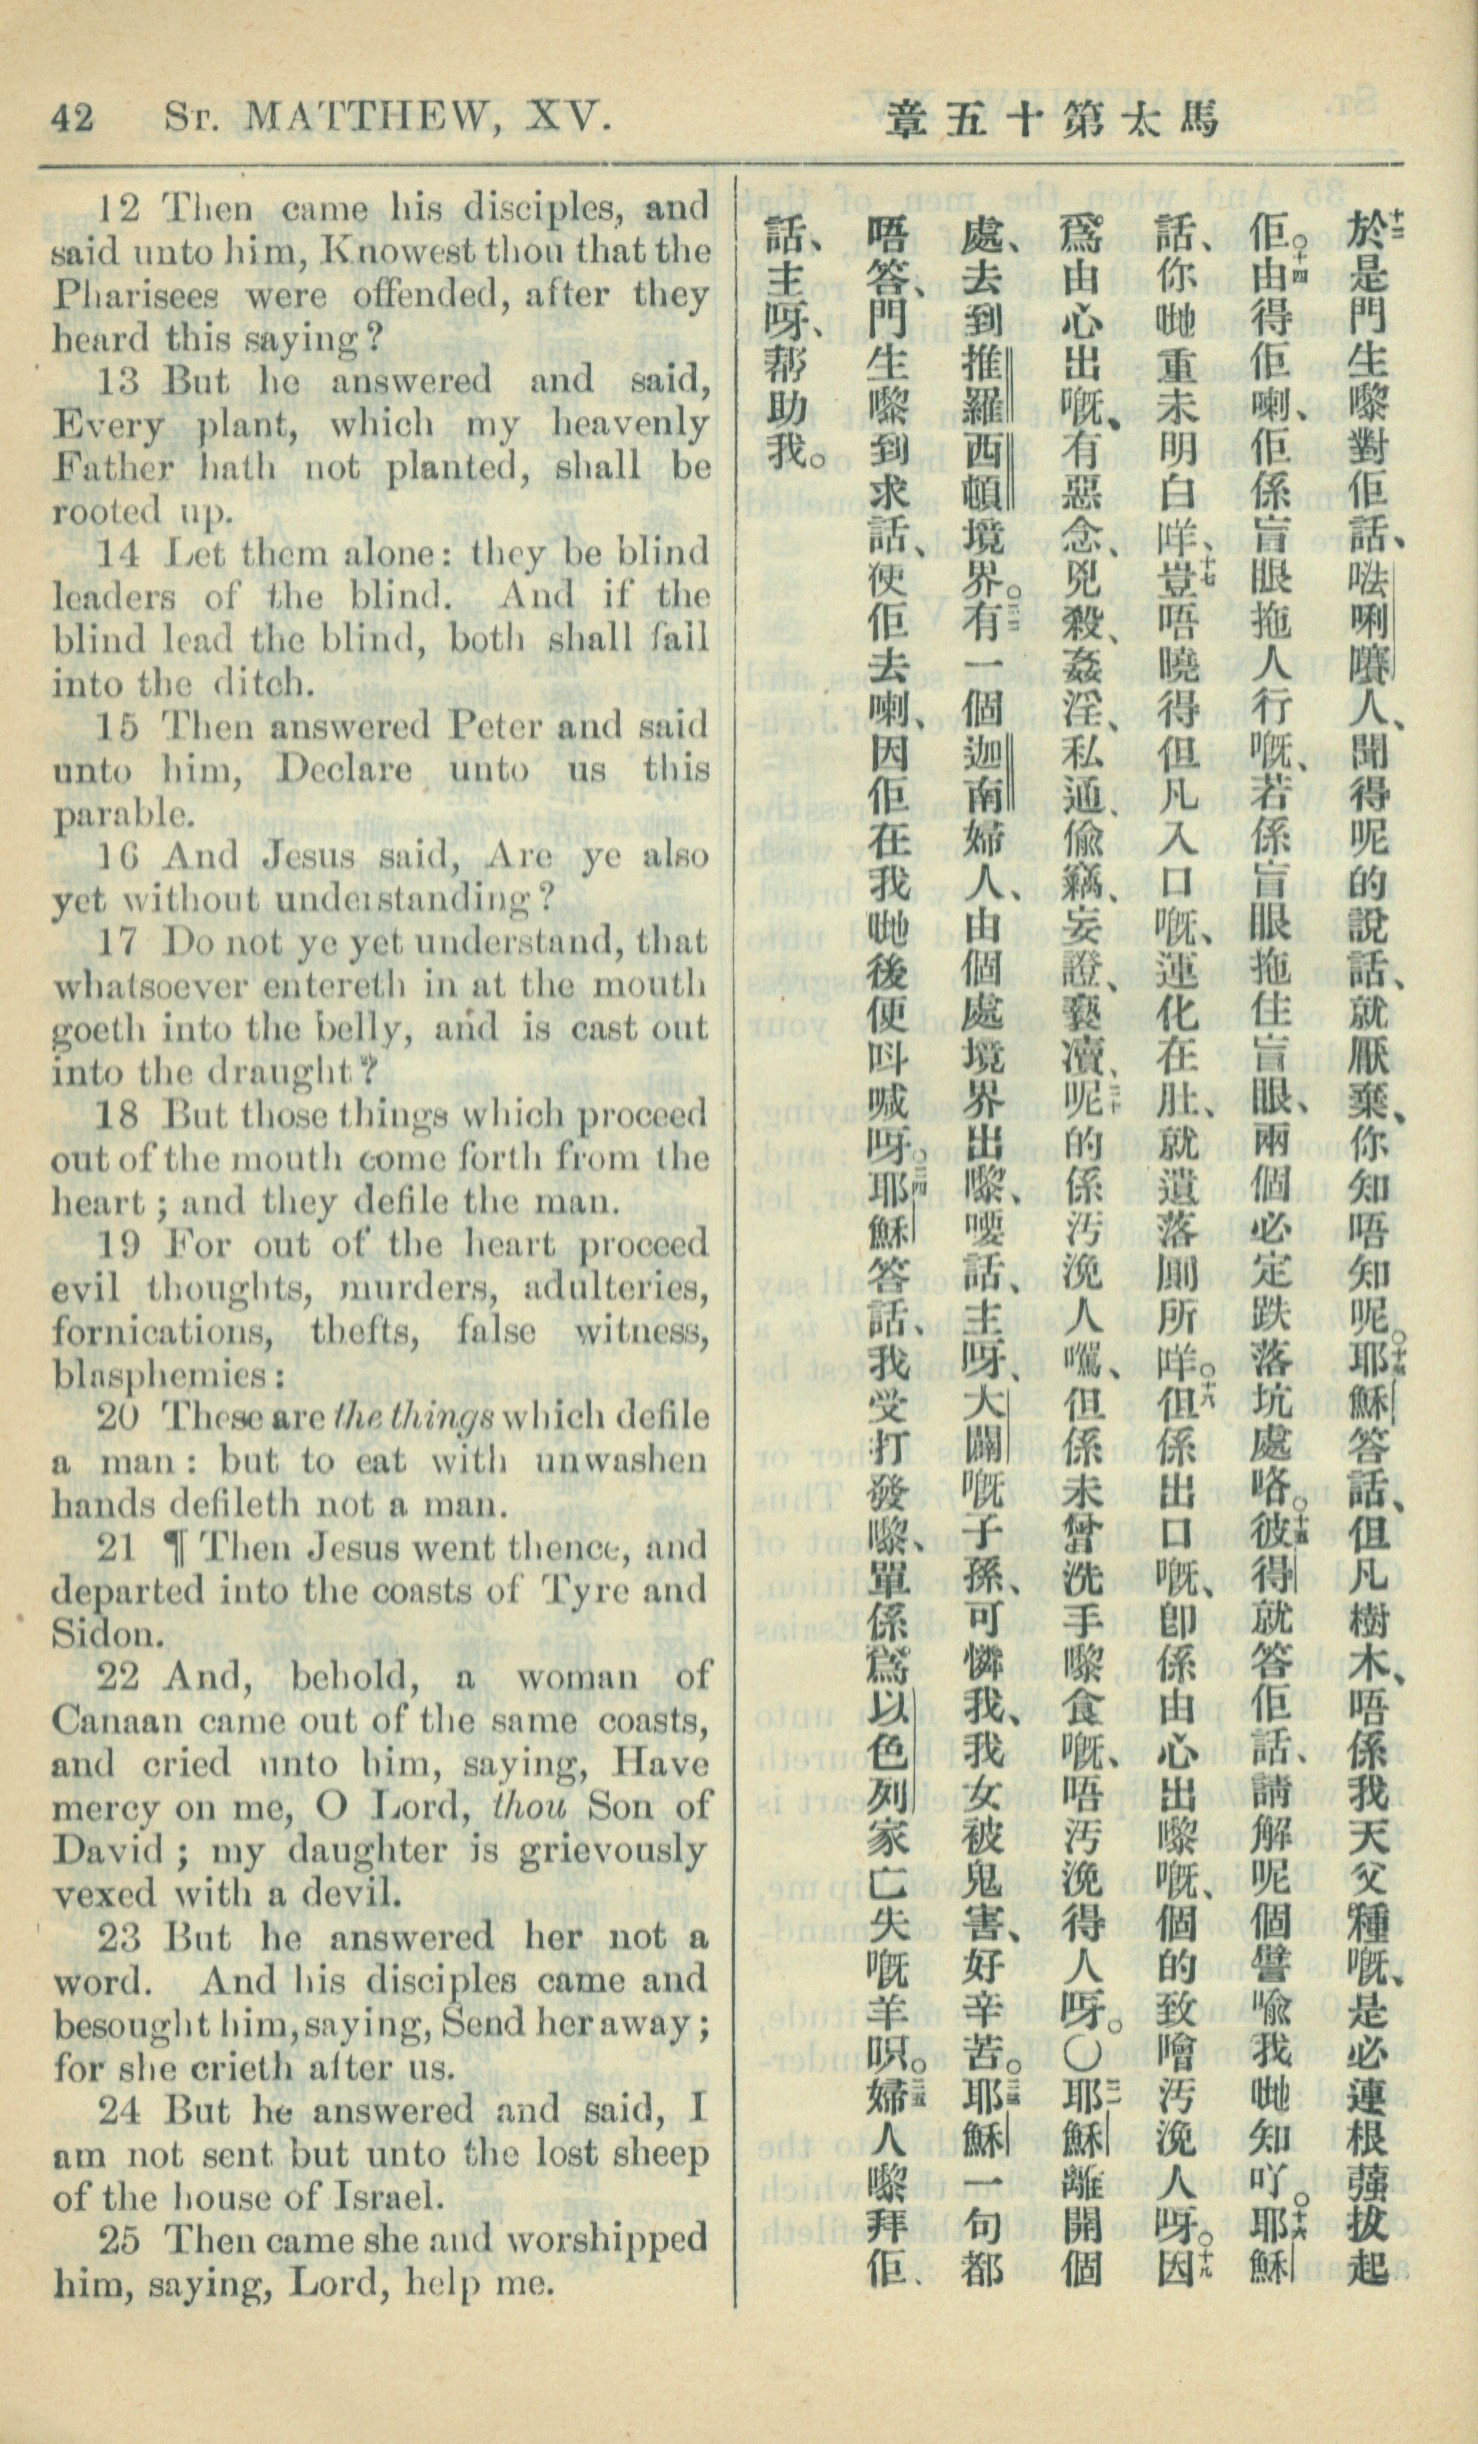 42 St. MATTHEW, XV.
章五十第太馬
12 Then came his disciples, and
said unto him, Knowest thou that the
Pharisees were offended, after they
heard this saying?
13 But he answered and said,
Every plant, which my heavenly
Father hath not planted, shall be
rooted up.
14 Let them alone: they be blind
leaders of the blind. And if the
blind lead the blind, both shall fall
into the ditch.
15 Then answered Peter and said
unto him, Declare unto us this
parable.
16 And Jesus said, Are ye also
yet without understanding?
17 Do not ye yet understand, that
whatsoever entereth in at the mouth
goeth into the belly, and is cast out
into the draught?
18 But those things which proceed
out of the mouth come forth from the
heart; and they defile the man.
19 For out of the heart proceed
evil thoughts, murders, adulteries,
fornications, thefts, false witness,
blasphemies:
20 These are the things which defile
a man: but to eat with unwashen
hands defileth not a man.
21 ¶ Then Jesus went thence, and
departed into the coasts of Tyre and
Sidon.
22 And, behold, a woman of
Canaan came out of the same coasts,
and cried unto him, saying, Have
mercy on me, O Lord, thou Son of
David; my daughter is grievously
vexed with a devil.
23 But he answered her not a
word. And his disciples came and
besought him, saying, Send her away;
for she crieth after us.
24 But he answered and said, I
am not sent but unto the lost sheep
of the house of Israel.
25 Then came she and worshipped
him, saying, Lord, help me.
十二於是門生嚟對佢話、𠵽唎嚽人、聞得呢的說話、就厭棄、你知唔知呢。十三耶穌答話、但凡樹木、唔係我天父種嘅、是必連根强拔起
佢。十四由得佢喇、佢係盲眼拖人行嘅、若係盲眼拖住盲眼、兩個必定跌落坑處咯。十五彼得就答佢話、請解呢個譬喻我哋知吖。十六耶穌
話、你哋重未明白咩、十七豈唔曉得但凡入口嘅、運化在肚、就遺落厠所咩。十八但係出口嘅、卽係由心出嚟嘅、個的致噲汚浼人呀。十九因
爲由心出嘅、有惡念、兇殺、姦淫、私通、偷竊、妄證、褻瀆、二十呢的係汚浼人嘅、但係未曾洗手嚟食嘅、唔汚浼得人呀。〇二一耶穌離開個
處、去到推羅西頓境界。二二有一個迦南婦人、由個處境界出嚟、嗌話、主呀、大闢嘅子孫、可憐我、我女被鬼害、好辛苦。二三耶穌一句都
唔答、門生嚟到求話、使佢去喇、因佢在我哋後便呌喊呀。二四耶穌答話、我受打發嚟、單係爲以色列家亡失嘅羊啫。二五婦人嚟拜佢、
話、主呀、帮助我。